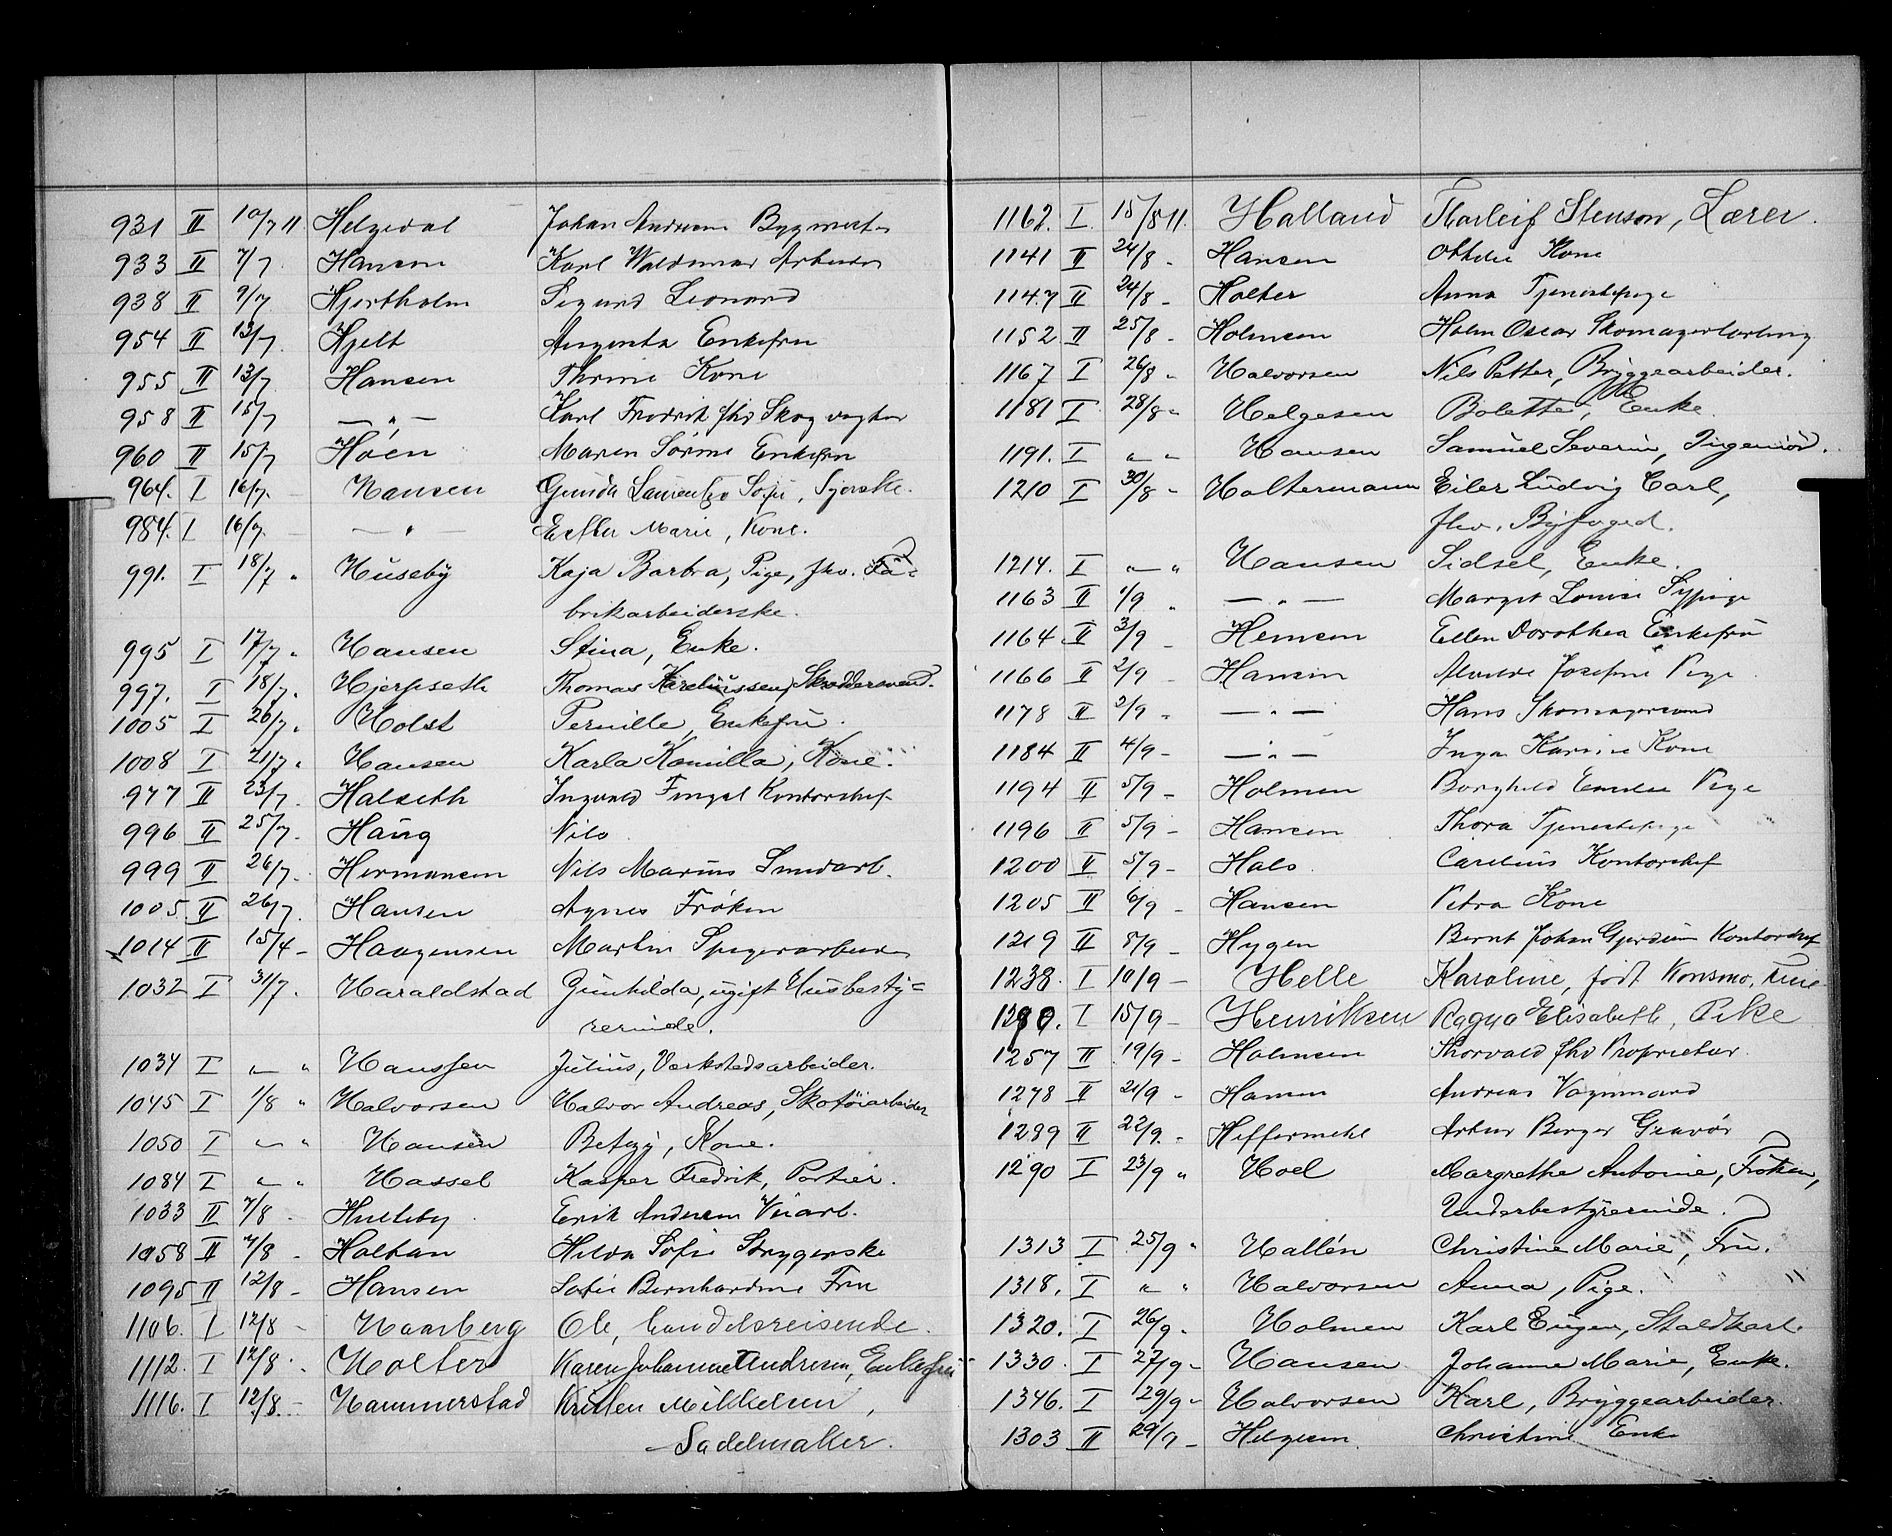 931 II 10/7 11 Helgedal Johan Andreas Bygmest.
933 II 7/7 Hansen Karl Waldemar Arbeider
938 II 9/7 Hjortholm Sigurd Leonard
954 II 13/7 Hjelt Augusta Enkefru
955 II 13/7 Hansen Thrine Kone
958 II 15/7 — " — Karl Fredrik fhv Skogvogter
960 II 15/7 Høen Maren Sørine Enkefru
964. I 16/7. Hansen Gunda Laurentze Sofie, Syerske.
984. I 16/7. — " — Esther Marie, Kone.
991. I 18/7 " Huseby Kaja Barbra, Pige, fhv. Fa=
brikarbeiderske.
995 I 17/7 " Hansen Stina, Enke.
997. I 18/7. Hjerpseth Thomas Kareliussen, Skreddersvend.
1005 I 26/7. Holst Pernille, Enkefru.
1008 I 21/7 " Hansen Karla Kamilla, Kone.
977 II 23/7. Halseth Ingvald Fingal Kontorchef
996 II 25/7. Haug Nils
999 II 26/7. Hermansen Nils Marius Smedarb.
1005 II 26/7 Hansen Agnes Frøken
1014 II 15/4 - Haagensen Martin Spigerarbeider
1032 I 31/7. Haraldstad Gunhilda, ugift Husbesty=
rerinde.
1034 I " " Hanssen Julius, Verkstedsarbeider.
1045 I 1/8 " Halvorsen Halvor Andreas, Skotøiarbeider
1050 I " " Hansen Betzy, Kone.
1084 I " " Hassel Kasper Fredrik, Portier.
1033 II 7/8 - Hulleby Erik Andersen Veiarb.
1058 II 7/8 - Holtan Hilda Sofie Strygerske
1095 II 12/8 - Hansen Sofie Bernhardine Fru
1106. I 12/8 - Haarberg Ole, Handelsreisende.
1112. I 12/8. Holter Karen Johanne Andresen, Enkefru
1116. I 12/8. - Hammerstad Kristen Mikkelsen,
Sadelmaker.
1162. I. 15/8 11. Halland Tharleif Stenson, Lærer.
1141 II 24/8 - Hansen Othelie Kone
1147 II 24/8 - Holter Anna Tjenestepige
1152 II 25/8 - Holmsen Holm Oscar Skomagerlærling
1167 I 26/8 " Halvorsen Nils Petter, Bryggearbeider.
1181 I 28/8 " Helgesen Bolette, Enke.
1191. I " " Hansen Samuel Severin, Ingeniør.
1210 I 30/8 " Holtermann Eiler Ludvig Carl,
fhv. Byfoged.
1214. I " " Hansen Sidsel, Enke.
1163 II 1/9 " — " — Margit Louise Sypige
1164 II 3/9 - Hemsen Ellen Dorothea Enkefru
1166 II 2/9 - Hansen Alvilde Josefine Pige
1178 II 2/9 - — " — Hans Skomagersvend
1184 II 4/9 - — " — Inga Karine Kone
1194 II 5/9 - Holmen Borghild Emilie Pige
1196 II 5/9 - Hansen Thora Tjenestepige
1200 II 5/9 - Hals Carelius Kontorchef
1205 II 6/9 - Hansen Petra Kone
1219 II 8/9 - Hygen Bernt Johan Gjerdrum Kontorchef
1238. I 10/9 - Helle Karoline, født Konsmo,
1290. I 15/9 - Henriksen Ragna Elisabeth, Pike
1257 II 19/9 - Holmsen Thorvald fhv Proprietær
1278 II 21/9 - Hansen Andreas Vognmand
1289 II 22/9. - Heffermehl Arthur Berger Gravør
1290 I 23/9 " Hoel Margrethe Antonie, Frøken,
Underbestyrerinde.
1313 I 25/9 " Hallén Christine Marie, Fru.
1318. I " " Halvorsen Anna, Pige.
1320. I 26/9 " Holmen Karl Eugen, Staldkarl.
1330. I 27/9 " Hansen Johanne Marie, Enke.
1346. I 29/9 " Halvorsen Karl, Bryggearbeider.
1303 II 29/9 - Helgesen Christine Enke